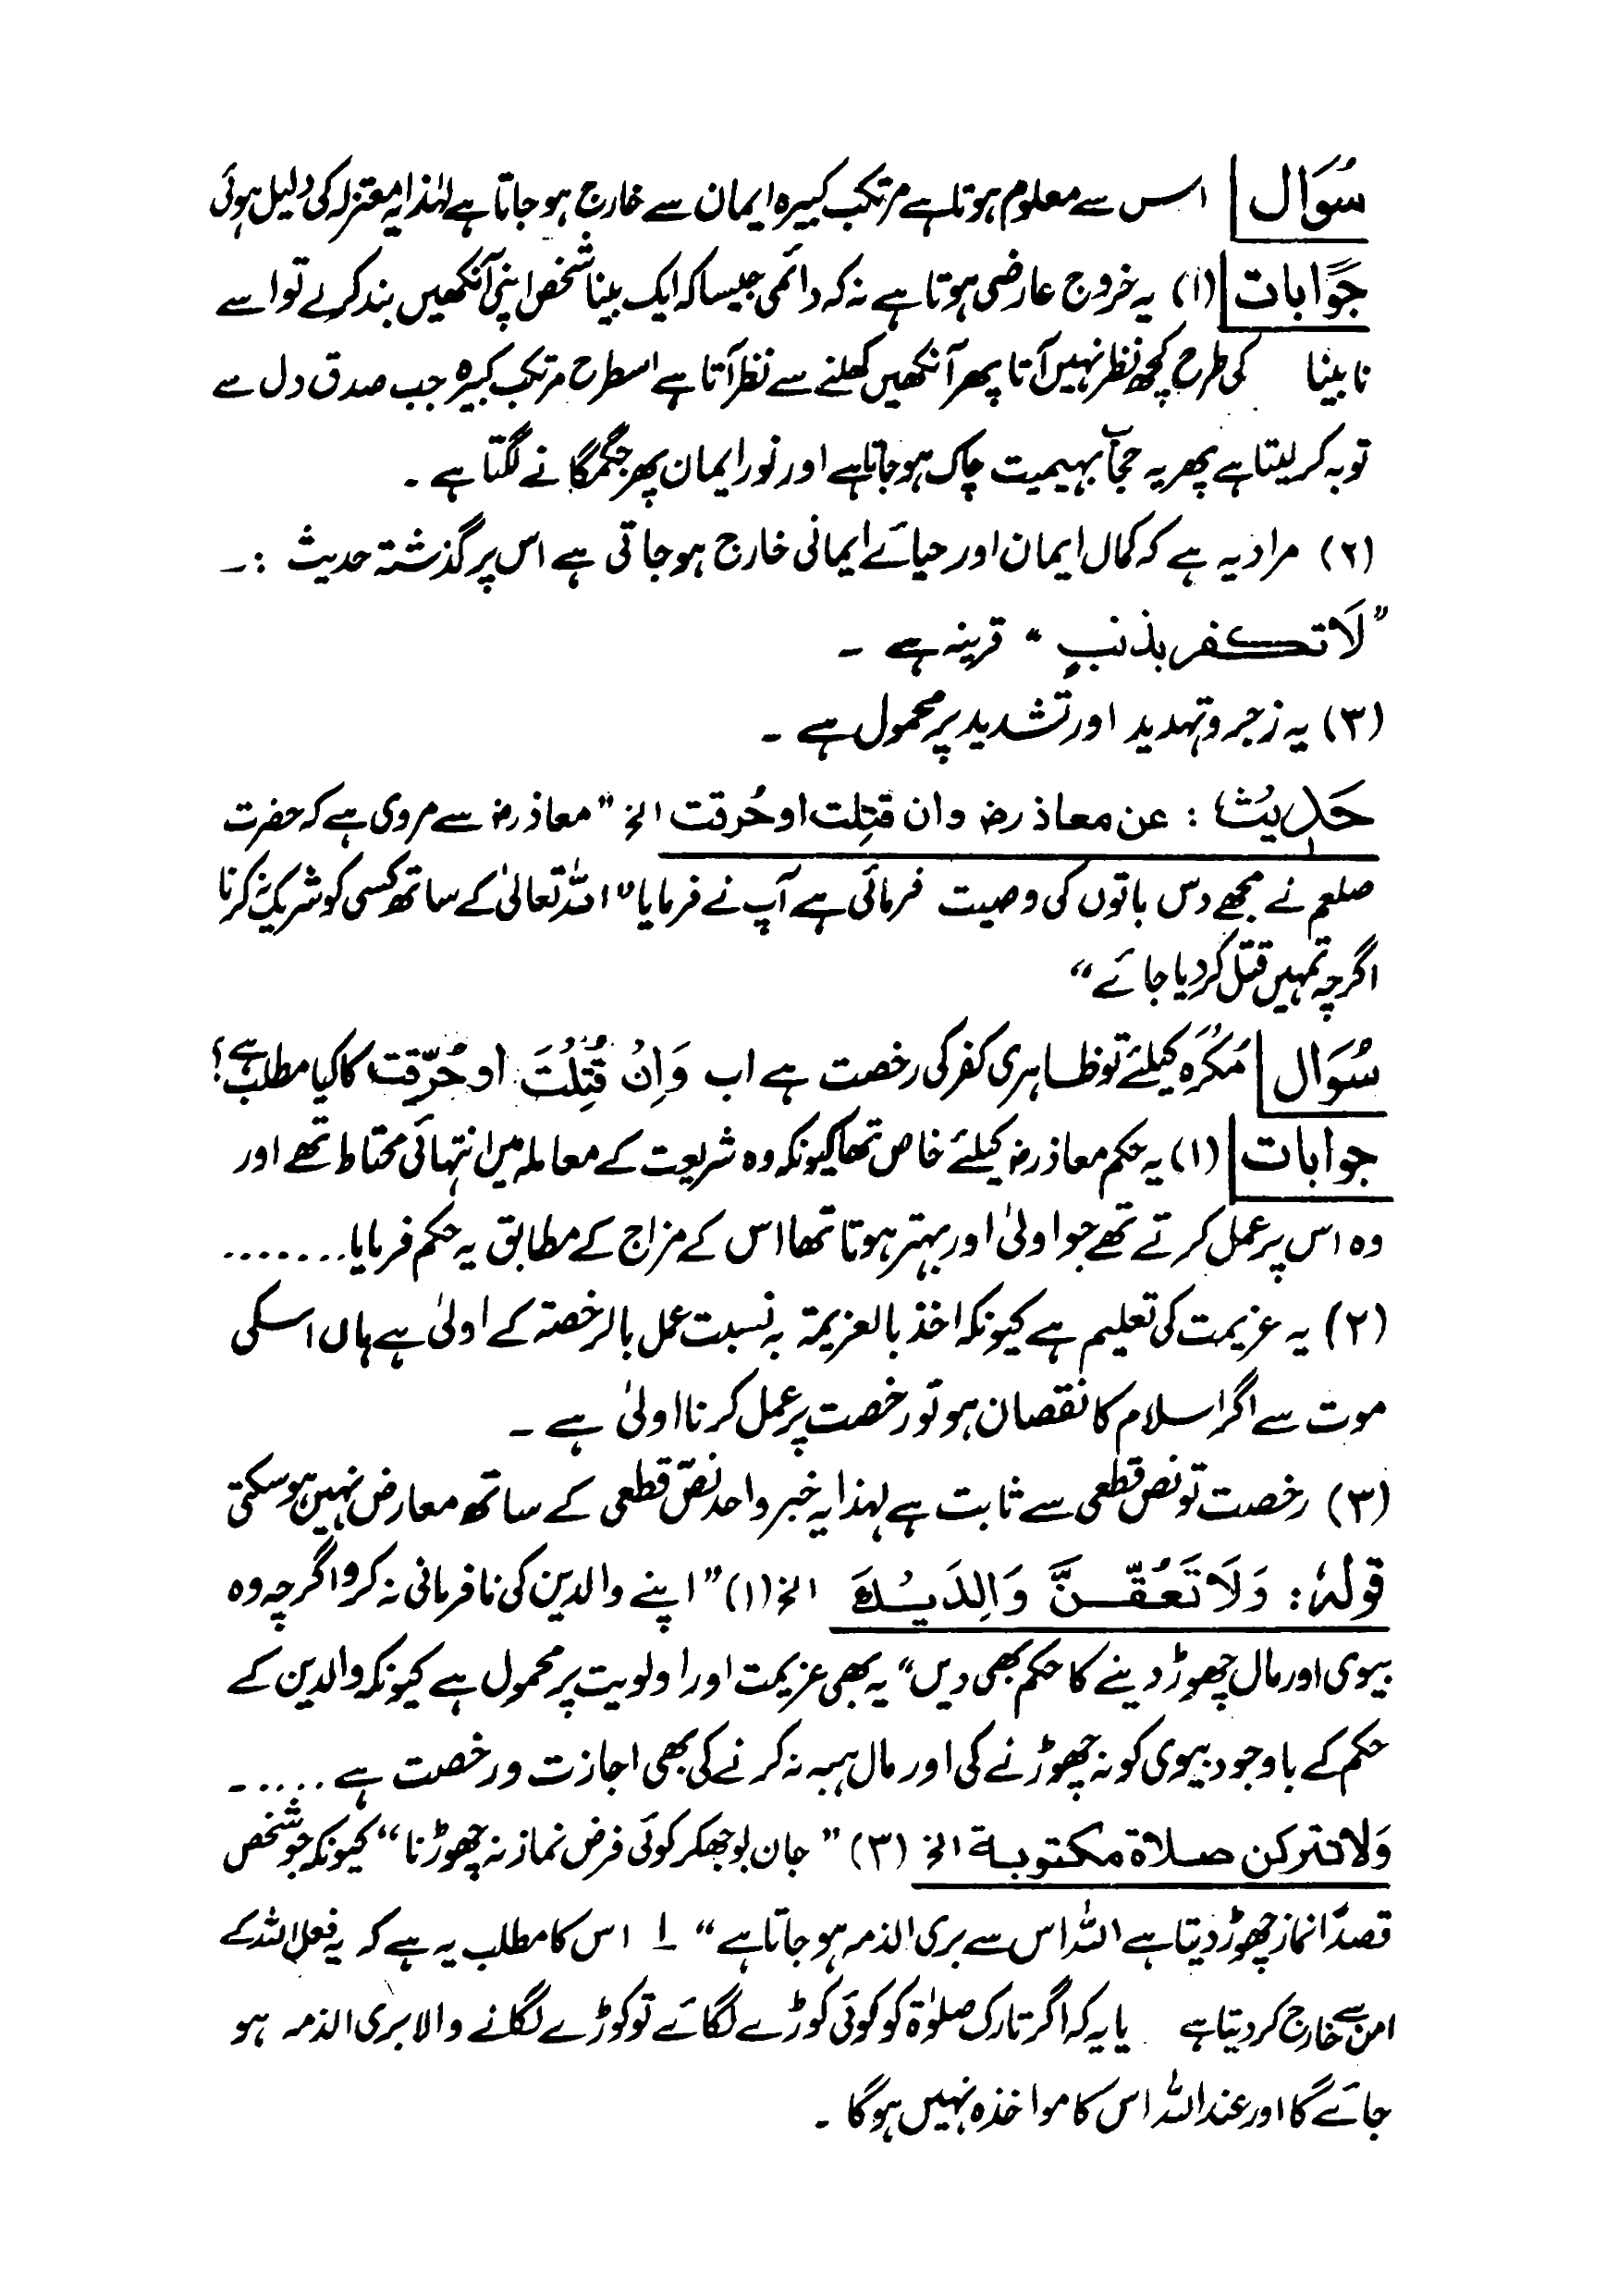 سُوَال اس سے معلوم ہوتا ہے مرتکب کبیرہ ایمان سے خارج ہو جاتا ہے لہٰذا یہ معتزلہ کی دلیل ہوئی
جَوَابات (۱) یہ خروج عارضی ہوتا ہے نہ کہ دائمی جیسا کہ ایک بینا شخص اپنی آنکھیں بند کرلے تو اسے
نابینا کی طرح کچھ نظر نہیں آتا پھر آنکھیں کھلنے سے نظر آتا ہے اسطرح مرتکب کبیرہ جب صدق دل سے
توبہ کر لیتا ہے پھر یہ حجاب بہیمیت چاک ہو جاتا ہے اور نور ایمان پھر جگمگانے لگتا ہے ۔
(۲) مراد یہ ہے کہ کمال ایمان اور حیائے ایمانی خارج ہو جاتی ہے اس پر گذشتہ حدیث :۔
”لَا تکفر بذنبٍ“ قرینہ ہے ۔
(۳) یہ زجر و تہدید اور تشدید پر محمول ہے ۔
حَدِیْث : عن معاذ رض وان قتِلت او حُرقت الخ ” معاذ رض سے مروی ہے کہ حضرت
صلعم نے مجھے دس باتوں کی وصیت فرمائی ہے آپ نے فرمایا ” اللہ تعالیٰ کے ساتھ کسی کو شریک نہ کرنا
اگرچہ تمہیں قتل کر دیا جائے “
سُوَال مُکْرَہ کیلئے تو ظاہری کفر کی رخصت ہے اب وَاِنْ قُتِلْتَ او حُرِّقت کا کیا مطلب ہے؟
جوابات (۱) یہ حکم معاذ رض کیلئے خاص تھا کیونکہ وہ شریعت کے معاملہ میں انتہائی محتاط تھے اور
وہ اس پر عمل کرتے تھے جو اولیٰ اور بہتر ہوتا تھا اس کے مزاج کے مطابق یہ حکم فرمایا.......
(۲) یہ عزیمت کی تعلیم ہے کیونکہ اخذ بالعزیمۃ بہ نسبت عمل بالرخصۃ کے اولیٰ ہے ہاں اسکی
موت سے اگر اسلام کا نقصان ہو تو رخصت پر عمل کرنا اولیٰ ہے ۔
(۳) رخصت تو نص قطعی سے ثابت ہے لہذا یہ خبر واحد نصّ قطعی کے ساتھ معارض نہیں ہو سکتی
قولہٗ : وَلَا تَعُقَّنَّ وَالِدَیْكَ الخ (۱) ” اپنے والدین کی نافرمانی نہ کرو اگرچہ وہ
بیوی اور مال چھوڑ دینے کا حکم بھی دیں“ یہ بھی عزیمت اور اولویت پر محمول ہے کیونکہ والدین کے
حکم کے باوجود بیوی کو نہ چھوڑنے کی اور مال ہبہ نہ کرنے کی بھی اجازت و رخصت ہے ..... ۔
وَلا تترکن صلاۃ مکتوبۃ الخ (۳) ” جان بوجھکر کوئی فرض نماز نہ چھوڑنا “ کیونکہ جو شخص
قصداً نماز چھوڑ دیتا ہے اللہ اس سے بری الذمہ ہو جاتا ہے “ ۱ اس کا مطلب یہ ہے کہ یہ فعل اللہ کے
امن سے خارج کر دیتا ہے یا یہ کہ اگر تارک صلوٰۃ کو کوئی کوڑے لگائے تو کوڑے لگانے والا بری الذمہ ہو
جائے گا اور عند اللہ اس کا مواخذہ نہیں ہوگا ۔